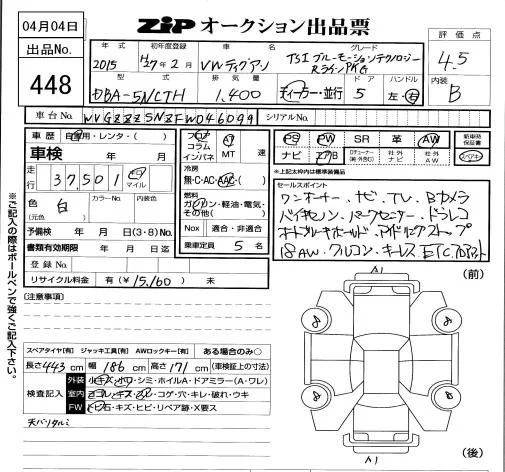 04月04日
ZiP オークション出品票
出品No.
448
評価点
4.5
内装
B
年式 初年度登録 車名 グレード
2015 H27年2月 VWティグアン TSI ブルーモーションテクノロジー
Rライン PKG
型式 排気量 ドア ハンドル
DBA-5NCTH 1,400 ディーラー・並行 5 左・右
車台No. WVGZZZ5NZFW046099 シリアルNo.
車歴 自家用・レンタ・( )
車検 年 月
走行 37,501 キロ マイル
色 白 (元色) カラーNo. 内装色
予備検 年 月 日(3・8)No.
書類有効期限 年 月 日
登録No.
リサイクル料金 有(¥15,160) 未
フロア コラム インパネ AT MT 速
冷房
無・C・AC・AAC・( )
燃料
ガソリン・軽油・電気・
その他( )
Nox 適合・非適合
乗車定員 5 名
PS PW SR 革 AW
ナビ エアB 社外ナビ 社外AW
新車時保証書
スペアキー
※上記太枠内は標準装備品
セールスポイント
ワンオーナー、ナビ、TV、Bカメラ
バイキセノン、パークセンサー、ドラレコ
オートブレーキホールド、アイドリングストップ
18AW、クルコン、キーレス、ETC
※ご記入の際はボールペンで強くご記入下さい。
(注意事項)
(前)
A1
スペアタイヤ[有] ジャッキ工具[有] AWロックキー[有] ある場合のみ○
長さ443cm 幅186cm 高さ171cm (車検証上の寸法)
検査記入
外装 小キズ・小ワ・シミ・ホイルA・ドアミラー(A・ワレ)
室内 ヨゴレ・キズ・スレ・コゲ・穴・キレ・破れ・ウキ
FW トビ石・キズ・ヒビ・リペア跡・X要ス
天バリタルミ
A1
(後)